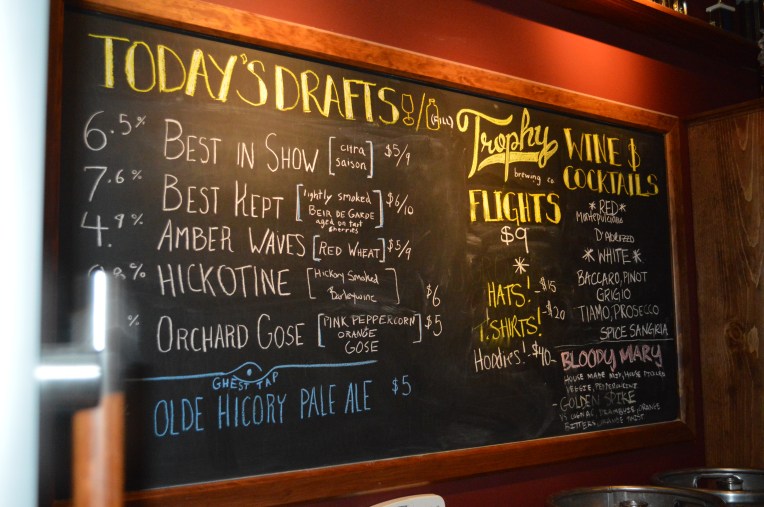 TODAY'S DRAFTS /(GILL)
6.5% BEST IN SHOW [citra saison] $5/9
7.6% BEST KEPT [lightly smoked BEIR DE GARDE aged on tart cherries] $6/10
4.9% AMBER WAVES [RED WHEAT] $5/9
% HICKOTINE [Hickory Smoked Barleywine] $6
% ORCHARD GOSE [PINK PEPPERCORN ORANGE GOSE] $5
GHEST TAP
OLDE HICORY PALE ALE $5
Trophy
brewing co.
FLIGHTS
$9
*
HATS! -$15
T.SHIRTS! -$20
Hoodies! -$40-
WINE &
COCKTAILS
*RED*
Montepulciano
*WHITE*
BACCARO, PINOT
GRIGIO
TIAMO, PROSECCO
SPICE SANGRIA
BLOODY MARY
HOUSE MADE MIX, HOUSE PICKLED
VEGGIE, PEPPERONCINE
-GOLDEN SPIKE
COGNAC, DRAMBUIE, ORANGE
BITTERS, ORANGE TWIST